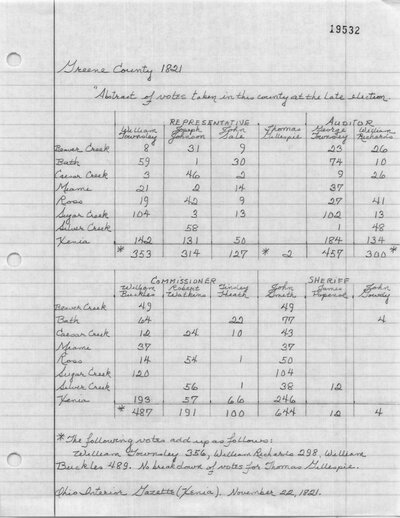 19532
Greene County 1821
"Abstract of votes taken in this county at the late election.
REPRESENTATIVE AUDITOR
William Townsley Joseph Johnson John Sale Thomas Gillespie George Townsley William Richards
Beaver Creek 8 31 9 23 26
Bath 59 1 30 74 10
Caesar Creek 3 46 2 9 26
Miame 21 2 14 37
Ross 19 42 9 27 41
Sugar Creek 104 3 13 102 13
Silver Creek 58 1 48
Xenia 142 131 50 184 134
* 353 314 127 * 2 457 300 *
COMMISSIONER SHERIFF
William Buckles Robert Watkins Tinsley Heath John Smith James Popenoe John Gowdy
Beaver Creek 49 49
Bath 64 22 77 4
Caesar Creek 12 24 10 43
Miame 37 37
Ross 14 54 1 50
Sugar Creek 120 104
Silver Creek 56 1 38 12
Xenia 193 57 66 246
* 487 191 100 644 12 4
* The following votes add up as follows:
William Townsley 356, William Richards 298, William
Buckles 489. No breakdown of votes for Thomas Gillespie.
Ohio Interior Gazette (Xenia), November 22, 1821.